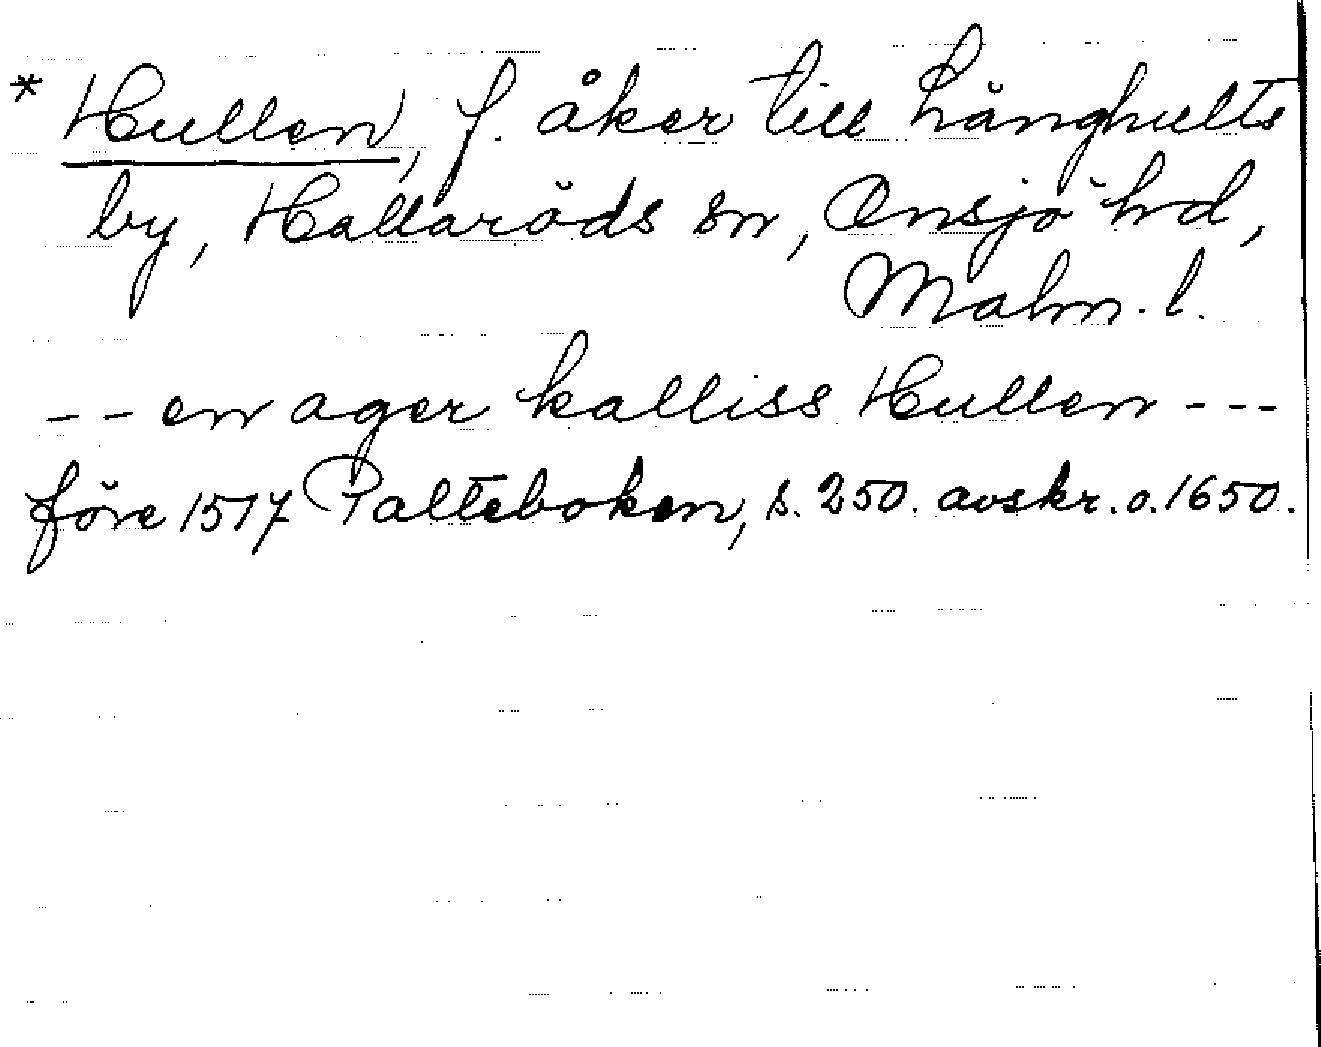 * Hullen, f. åker till Långhults
by, Hallaröds sn, Onsjö hd,
Malm. l.
-- en ager kalliss Hullen ---
före 1517 Palteboken, s. 250. avskr. o. 1650.